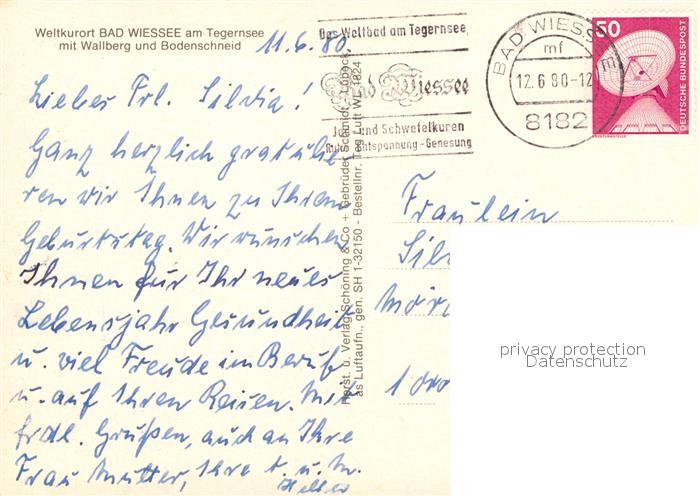 Weltkurort BAD WIESSEE am Tegernsee
mit Wallberg und Bodenschneid
11.6.80.
Liebes Frl. Silvia!
Ganz herzlich gratulie
ren wir Ihnen zu Ihrem
Geburtstag. Wir wünschen
Ihnen für Ihr neues
Lebensjahr Gesundheit
u. viel Freude im Beruf
u. auf Ihren Reisen. Mit
frdl. Grüßen, auch an Ihre
Frau Mutter, Ihre
u. M.
Das Weltbad am Tegernsee,
Bad Wiessee
Jod- und Schwefelkuren
Entspannung - Genesung
BAD WIESSEE
mf
12.6.80-12
8182
50
DEUTSCHE BUNDESPOST
Horst. u. Verlag Schöning & Co + Gebrüder Schmidt, Lübeck
as Luftaufn., gen. SH 1-32150 - Bestellnr. Teg Luft W 1824
Fräulein
Sil
1000
privacy protection
Datenschutz